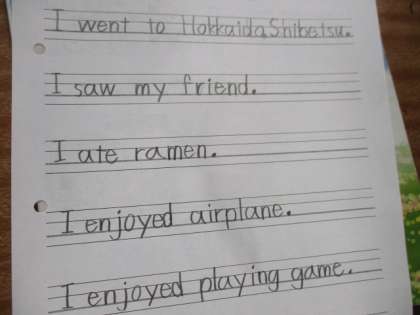 I went to Hokkaida Shibetsu.
I saw my friend.
I ate ramen.
I enjoyed airplane.
I enjoyed playing game.